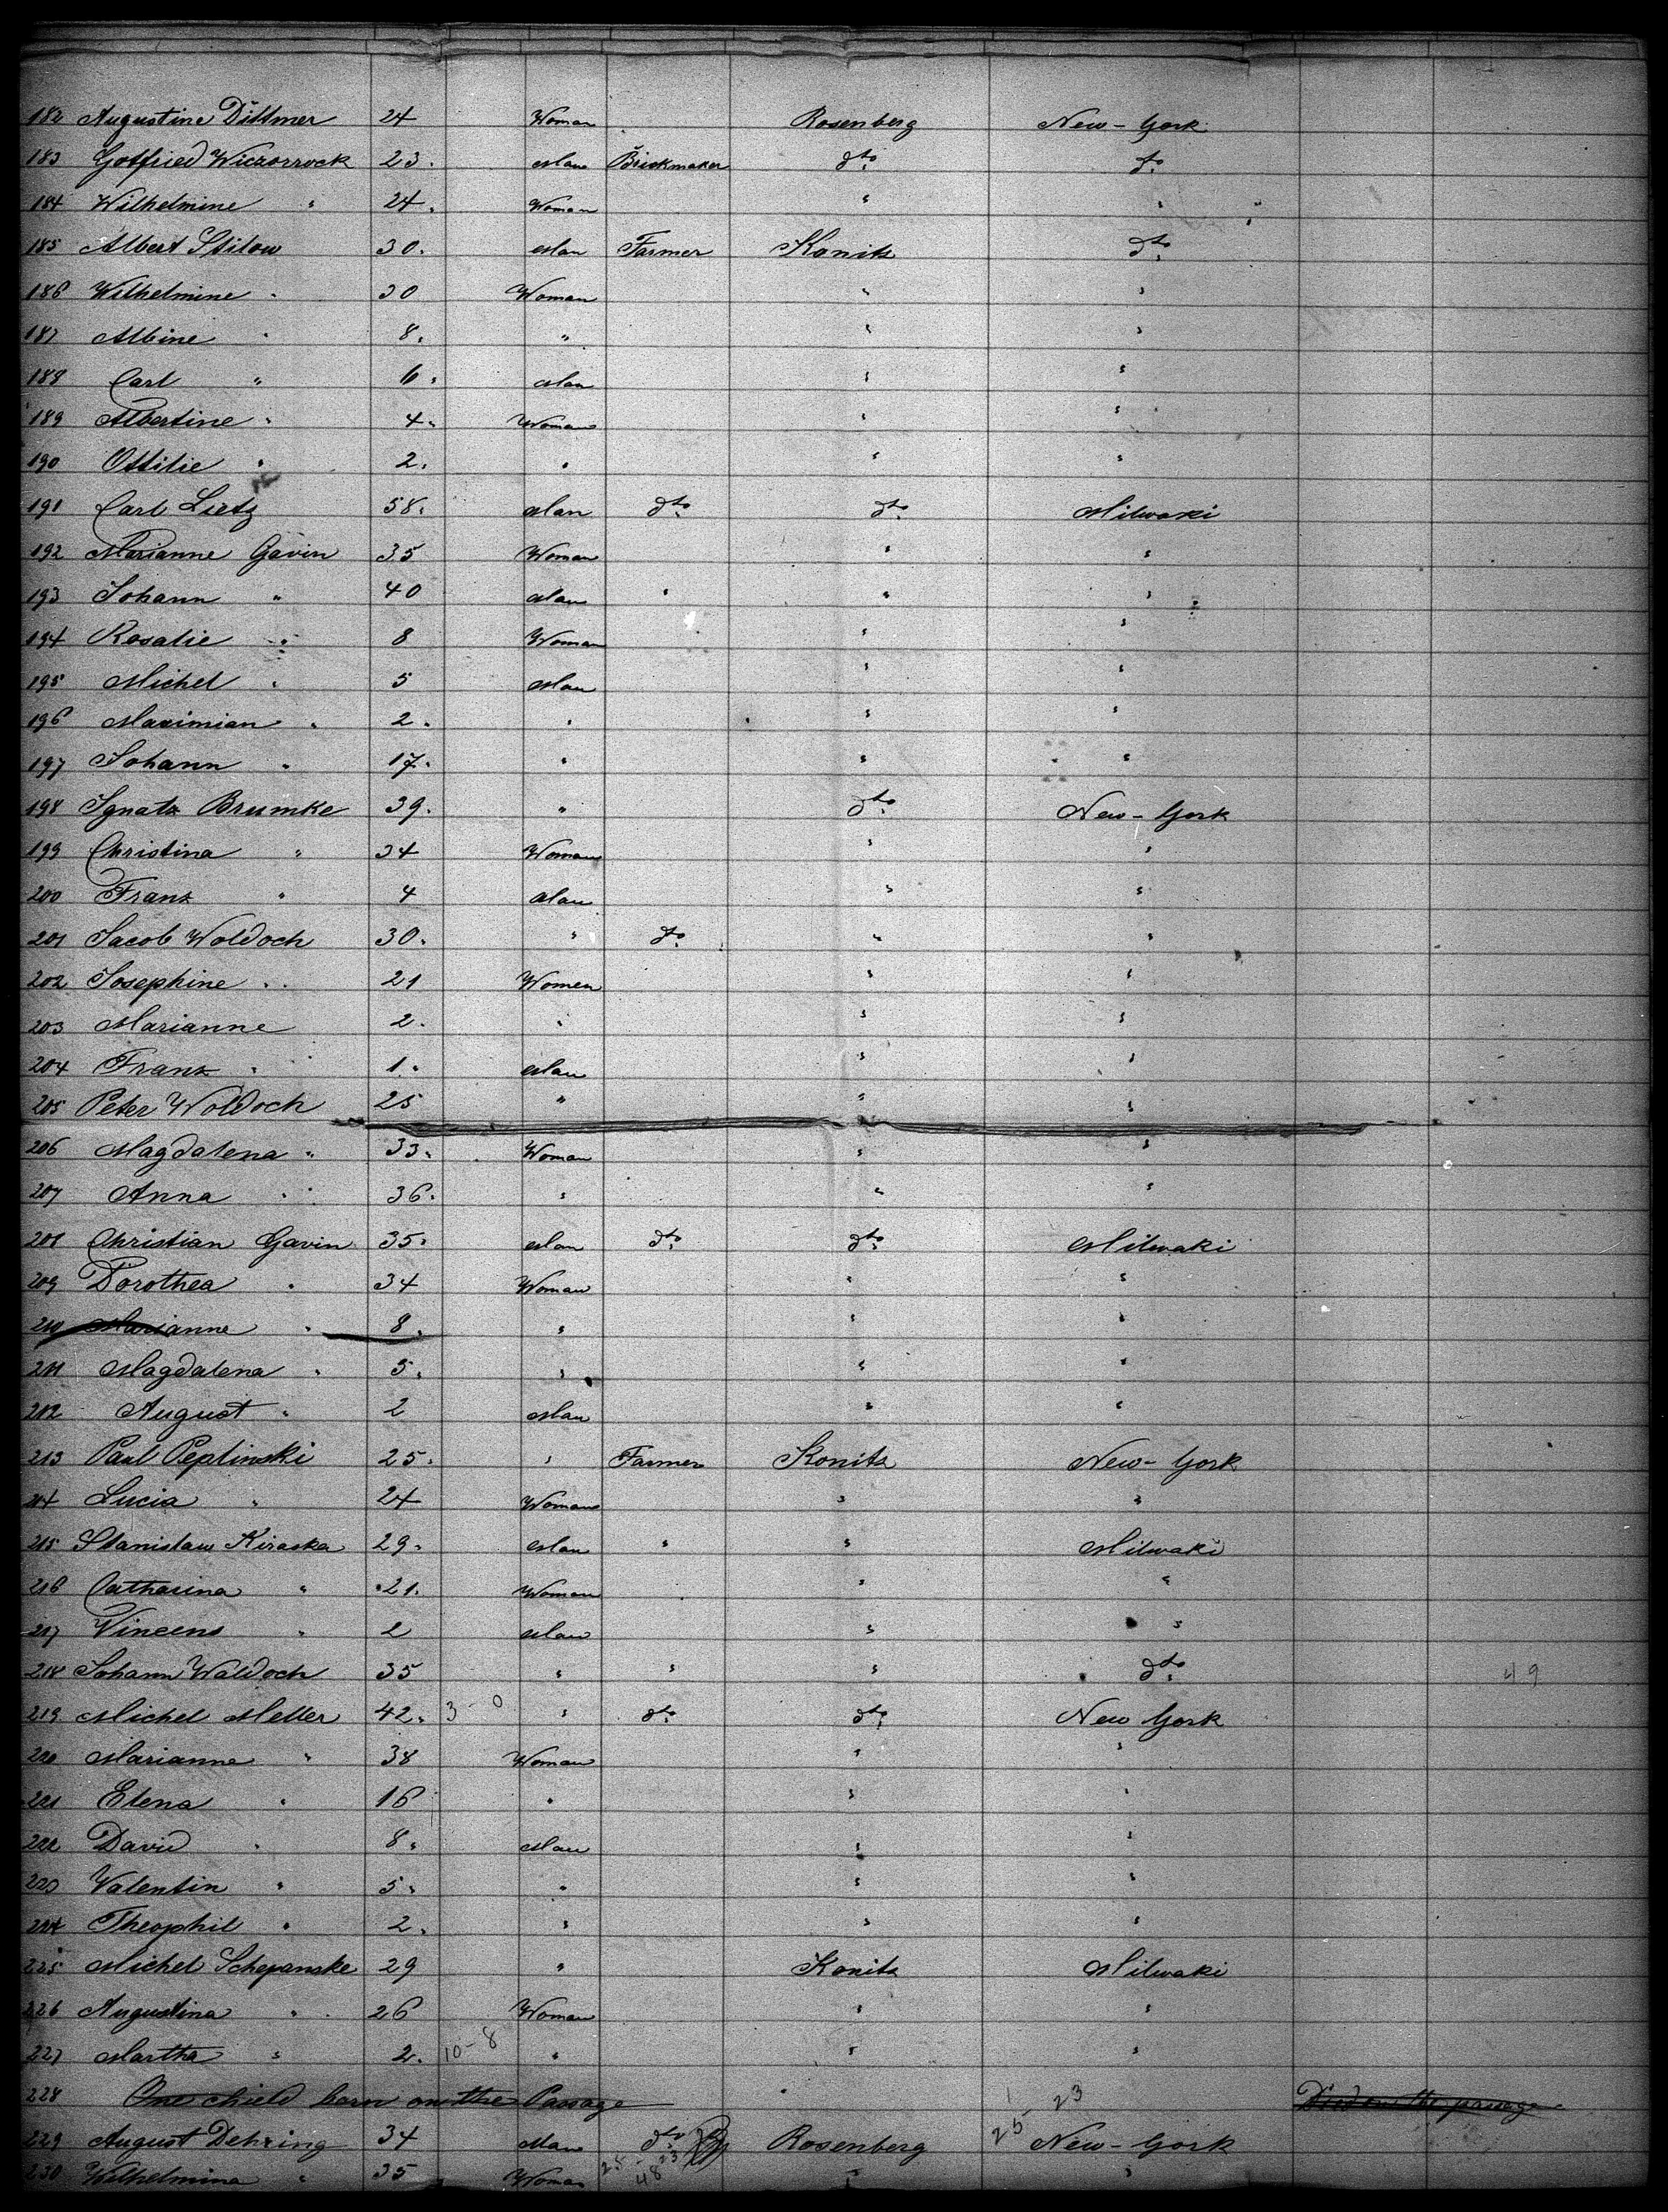 182 Augustine Dittmer 24 Woman Rosenberg New-York
183 Gottfried Wiczorrock 23. Man Brickmaker dto dto
184 Wilhelmine " 24. Woman " "
185 Albert Stilow 30. Man Farmer Konitz dto
186 Wilhelmine " 30 Woman " "
187 Albine " 8. " " "
188 Carl " 6. Man " "
189 Albertine " 4. Woman " "
190 Ottilie " 2. " " "
191 Carl Lietz 58. Man dto dto Milwaki
192 Marianne Gavin 35 Woman " "
193 Johann " 40 Man " " "
194 Rosalie " 8 Woman " "
195 Michel " 5 Man " "
196 Maximian " 2. " " "
197 Johann " 17. " " "
198 Ignatz Brumke 39. " dto New-York
199 Christina " 34 Woman " "
200 Franz " 4 Man " "
201 Jacob Woldoch 30. " dto " "
202 Josephine " 21 Women " "
203 Marianne 2. " " "
204 Franz " 1. Man " "
205 Peter Woldoch 25 " " "
206 Magdalena " 33. Woman " "
207 Anna " 36. " " "
208 Christian Gavin 35. Man dto dto Milwaki
209 Dorothea " 34 Woman " "
210 Marianne " 8. " " "
211 Magdalena " 5. " " "
212 August " 2 Man " "
213 Paul Peplinski 25. " Farmer Konitz New-York
214 Lucia " 24 Woman " "
215 Stanislaw Kiraska 29. Man " " Milwaki
216 Catharina " 21. Woman " "
217 Vincens " 2 Man " "
218 Johann Waldoch 35 " " " dto 49
219 Michel Meller 42. 3-0 " dto dto New York
220 Marianne " 38 Woman " "
221 Elena " 16 " " "
222 David " 8. Man " "
223 Valentin " 5. " " "
224 Theophil " 2. " " "
225 Michel Schepanske 29 " Konitz Milwaki
226 Augustina " 26 Woman " "
227 Martha " 2. 10-8 " " "
228 One child born on the Passage " 23 Died on the passage
229 August Dehring 34 Man dto Rosenberg 25 New-York
230 Wilhelmina " 35 Woman 48 " "